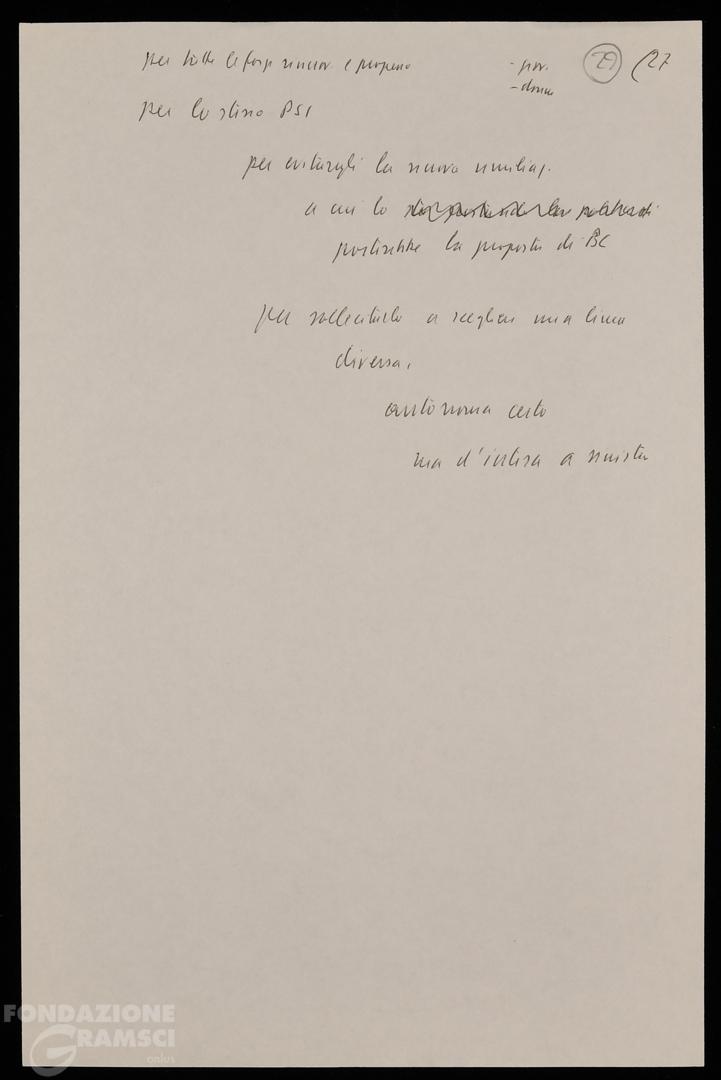 per tutte le forze rinnov. e progress. - giov. 29 (27
- donne
per lo stesso PSI
per evitargli la nuova umiliaz.
a cui lo
porterebbe la proposta di BC
per sollecitarlo a scegliere una linea
diversa,
autonoma certo
ma d'intesa a sinistra
FONDAZIONE
GRAMSCI
onlus